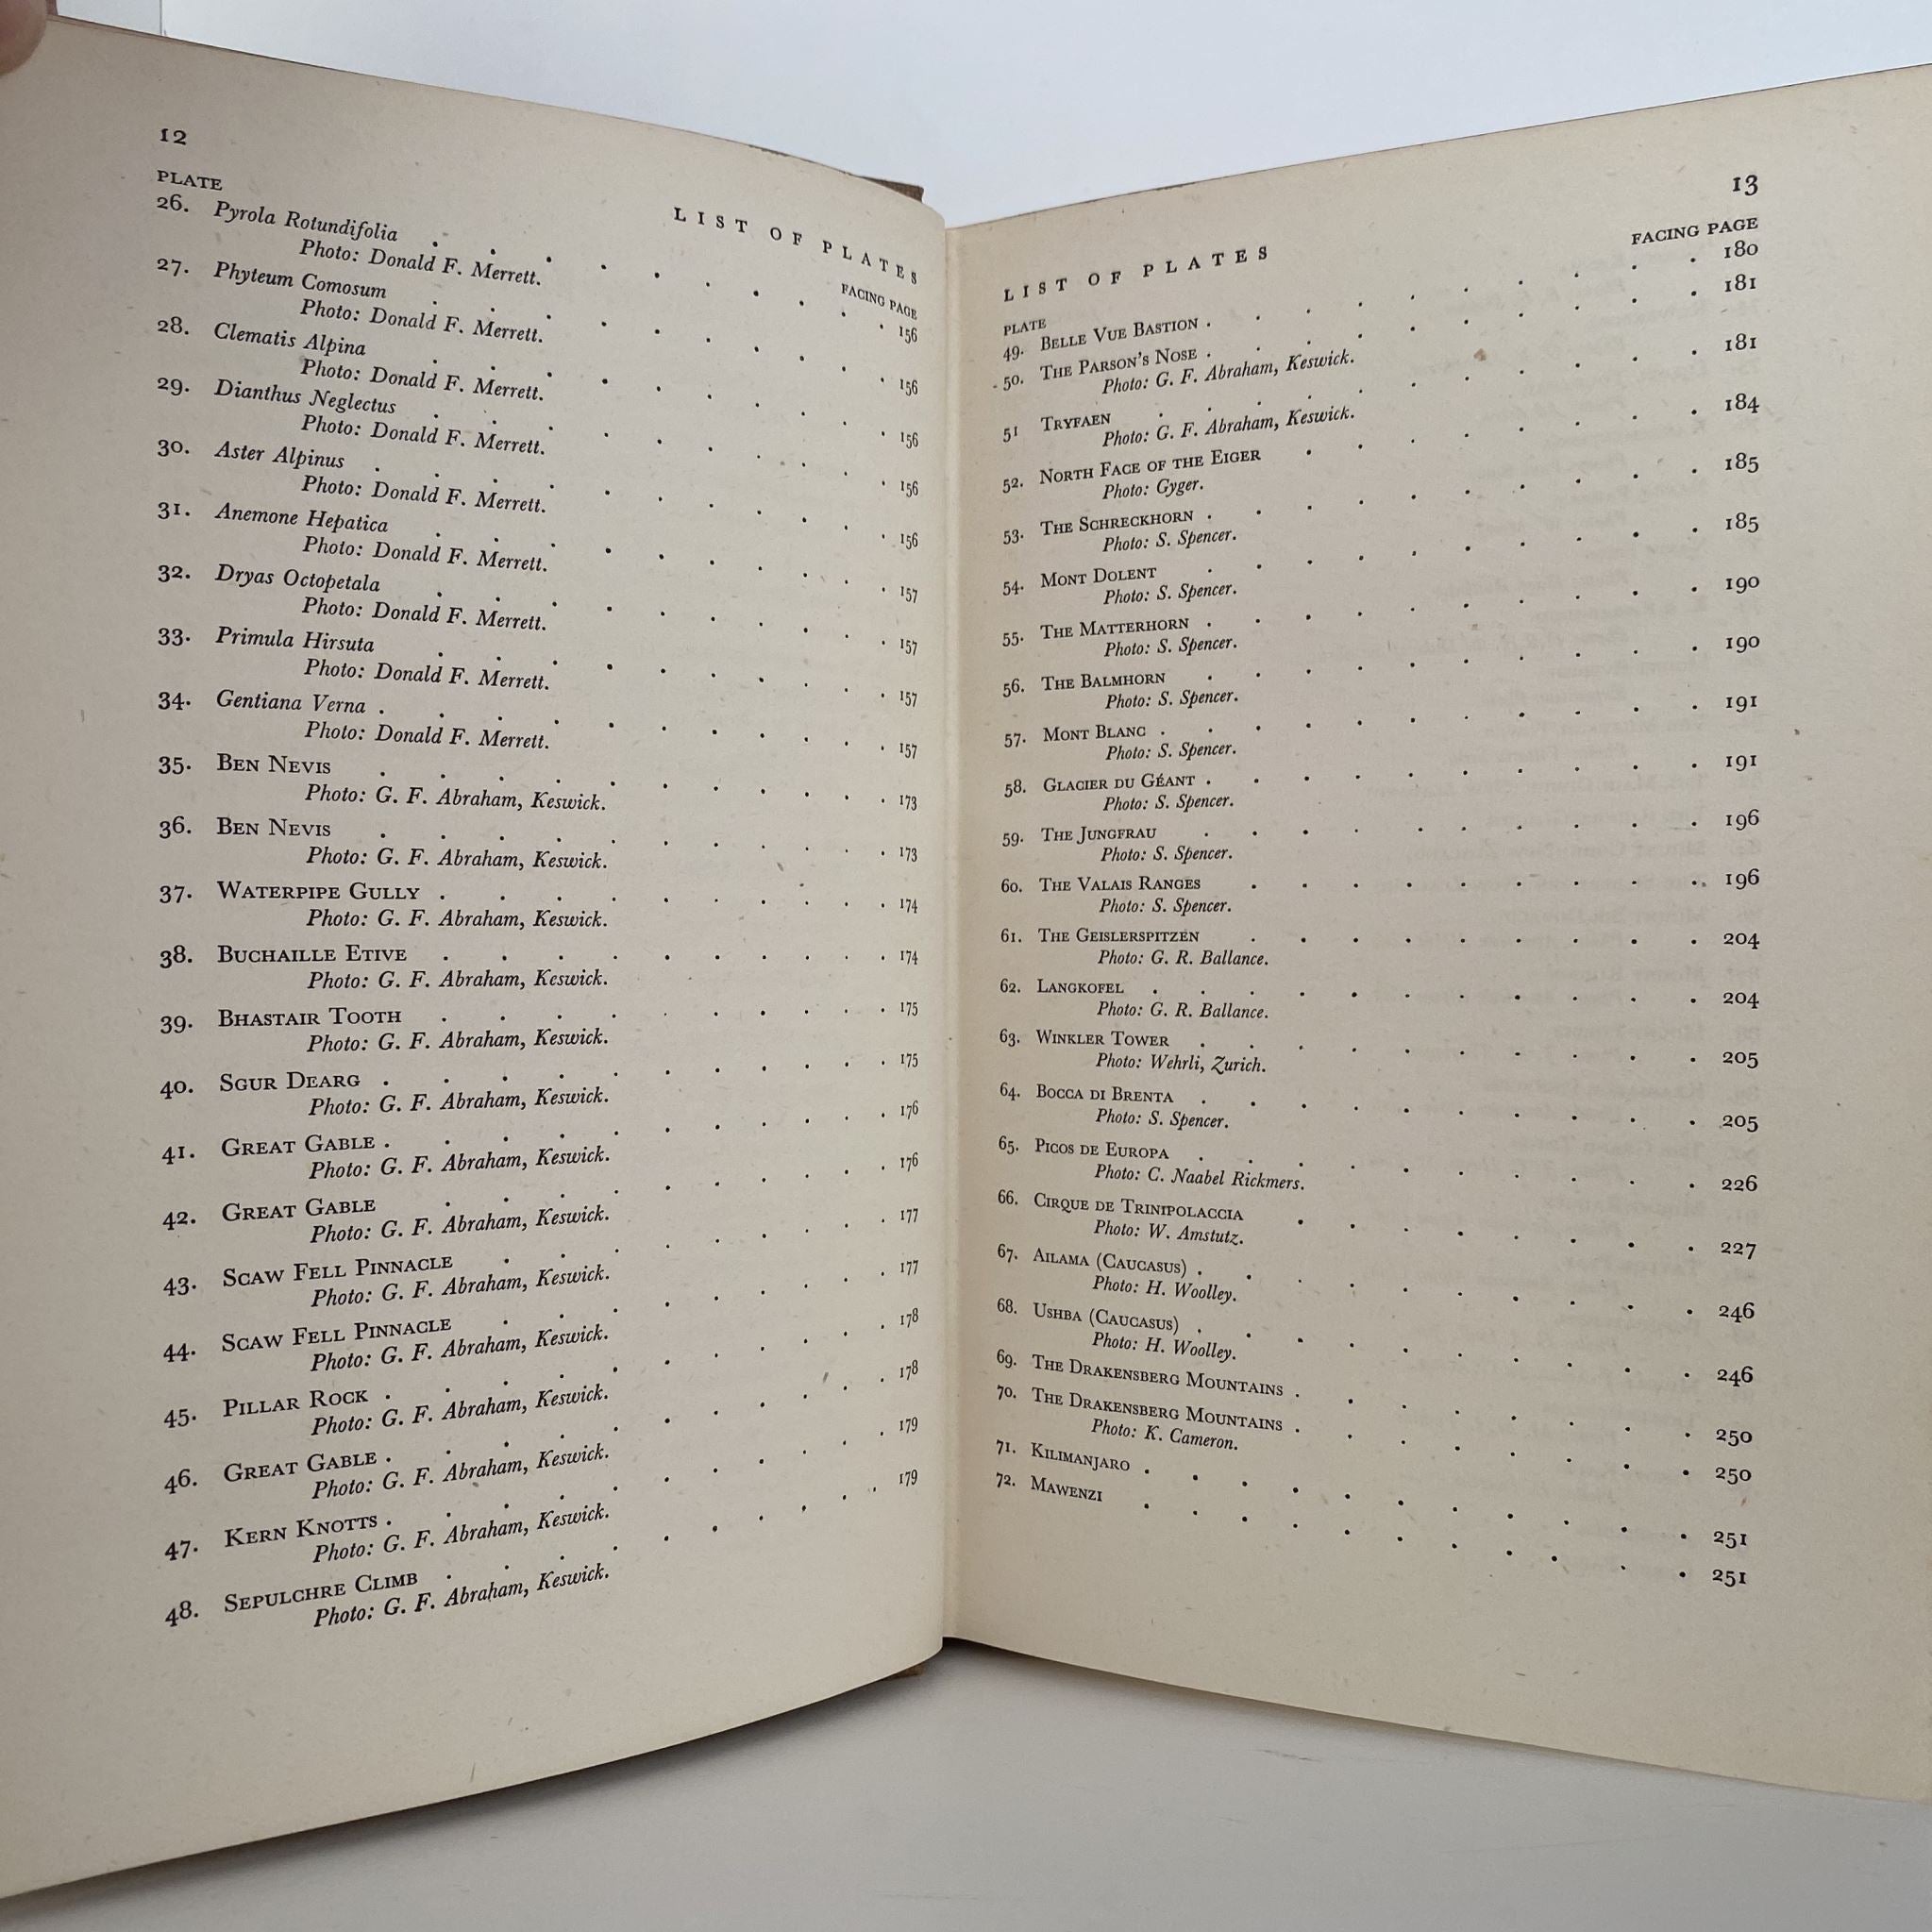 12
LIST OF PLATES
PLATE FACING PAGE
26. Pyrola Rotundifolia 156
Photo: Donald F. Merrett.
27. Phyteum Comosum 156
Photo: Donald F. Merrett.
28. Clematis Alpina 156
Photo: Donald F. Merrett.
29. Dianthus Neglectus 156
Photo: Donald F. Merrett.
30. Aster Alpinus 156
Photo: Donald F. Merrett.
31. Anemone Hepatica 157
Photo: Donald F. Merrett.
32. Dryas Octopetala 157
Photo: Donald F. Merrett.
33. Primula Hirsuta 157
Photo: Donald F. Merrett.
34. Gentiana Verna 157
Photo: Donald F. Merrett.
35. BEN NEVIS 173
Photo: G. F. Abraham, Keswick.
36. BEN NEVIS 173
Photo: G. F. Abraham, Keswick.
37. WATERPIPE GULLY 174
Photo: G. F. Abraham, Keswick.
38. BUCHAILLE ETIVE 174
Photo: G. F. Abraham, Keswick.
39. BHASTAIR TOOTH 175
Photo: G. F. Abraham, Keswick.
40. SGUR DEARG 175
Photo: G. F. Abraham, Keswick.
41. GREAT GABLE 176
Photo: G. F. Abraham, Keswick.
42. GREAT GABLE 176
Photo: G. F. Abraham, Keswick.
43. SCAW FELL PINNACLE 177
Photo: G. F. Abraham, Keswick.
44. SCAW FELL PINNACLE 177
Photo: G. F. Abraham, Keswick.
45. PILLAR ROCK 178
Photo: G. F. Abraham, Keswick.
46. GREAT GABLE 178
Photo: G. F. Abraham, Keswick.
47. KERN KNOTTS 179
Photo: G. F. Abraham, Keswick.
48. SEPULCHRE CLIMB 179
Photo: G. F. Abraham, Keswick.
13
LIST OF PLATES
PLATE FACING PAGE
49. BELLE VUE BASTION 180
50. THE PARSON'S NOSE 181
Photo: G. F. Abraham, Keswick.
51 TRYFAEN 181
Photo: G. F. Abraham, Keswick.
52. NORTH FACE OF THE EIGER 184
Photo: Gyger.
53. THE SCHRECKHORN 185
Photo: S. Spencer.
54. MONT DOLENT 185
Photo: S. Spencer.
55. THE MATTERHORN 190
Photo: S. Spencer.
56. THE BALMHORN 190
Photo: S. Spencer.
57. MONT BLANC 191
Photo: S. Spencer.
58. GLACIER DU GÉANT 191
Photo: S. Spencer.
59. THE JUNGFRAU 196
Photo: S. Spencer.
60. THE VALAIS RANGES 196
Photo: S. Spencer.
61. THE GEISLERSPITZEN 204
Photo: G. R. Ballance.
62. LANGKOFEL 204
Photo: G. R. Ballance.
63. WINKLER TOWER 205
Photo: Wehrli, Zurich.
64. BOCCA DI BRENTA 205
Photo: S. Spencer.
65. PICOS DE EUROPA 226
Photo: C. Naabel Rickmers.
66. CIRQUE DE TRINIPOLACCIA 227
Photo: W. Amstutz.
67. AILAMA (CAUCASUS) 246
Photo: H. Woolley.
68. USHBA (CAUCASUS) 246
Photo: H. Woolley.
69. THE DRAKENSBERG MOUNTAINS 250
70. THE DRAKENSBERG MOUNTAINS 250
Photo: K. Cameron.
71. KILIMANJARO 251
72. MAWENZI 251